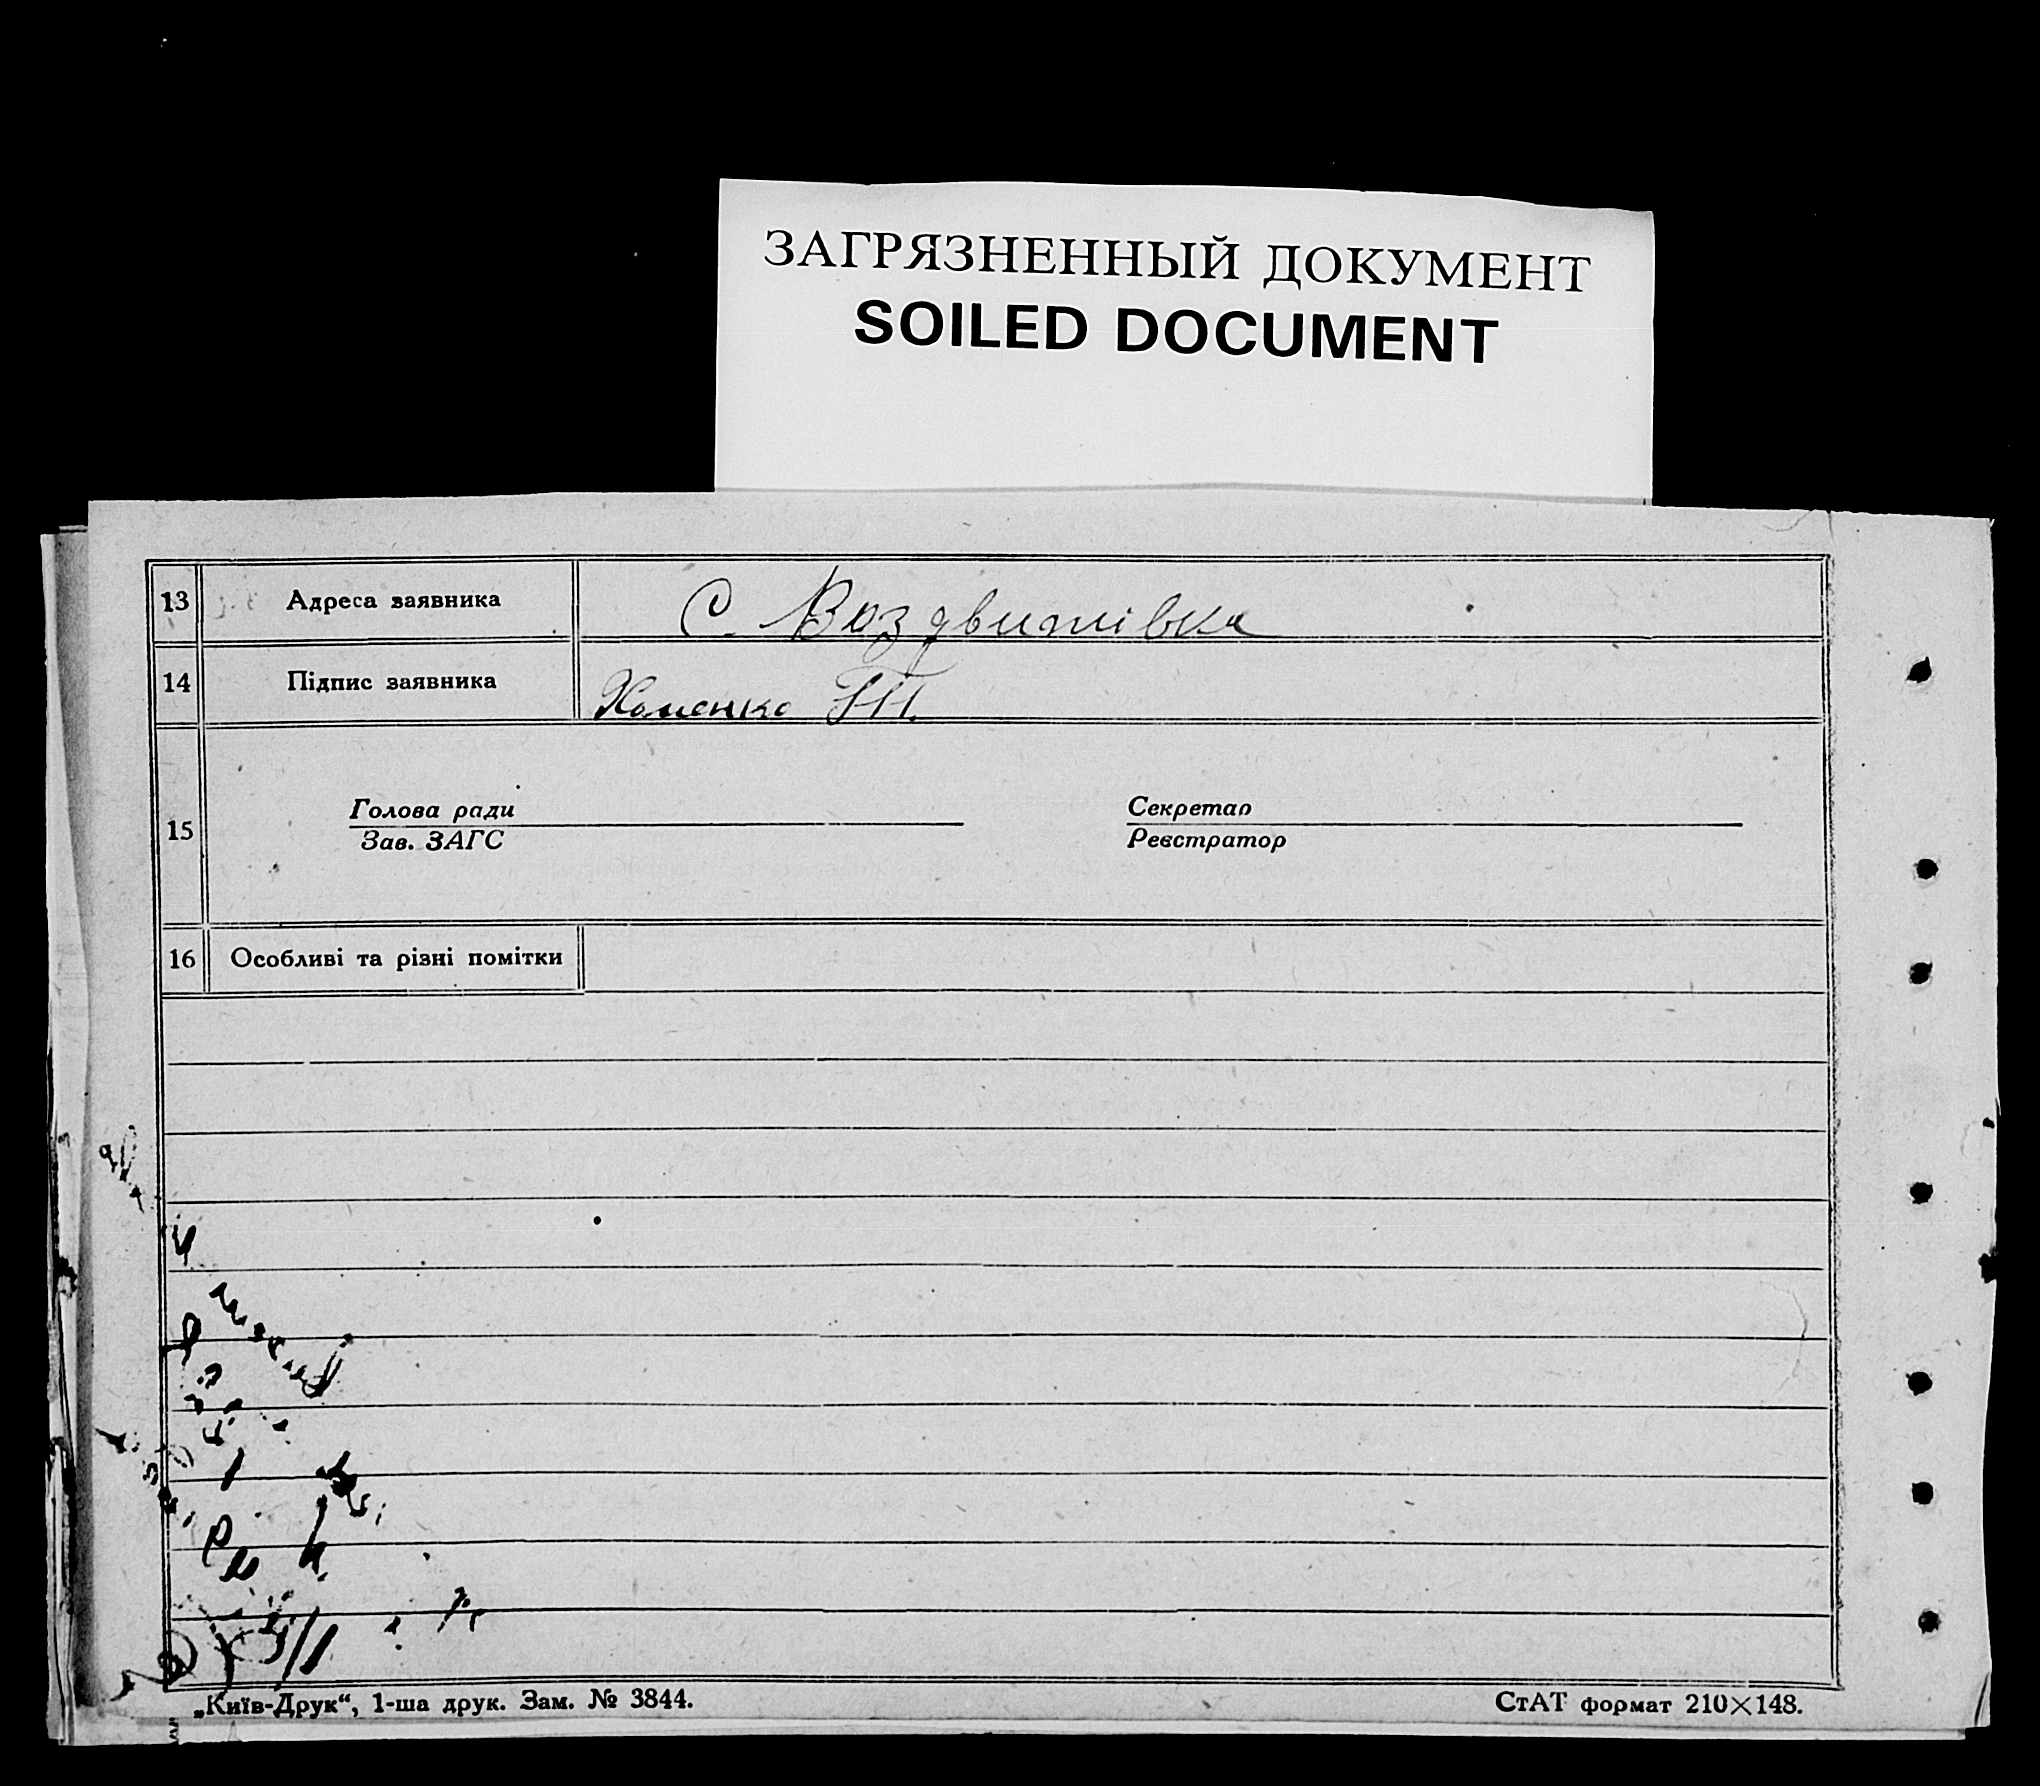 ЗАГРЯЗНЕННЫЙ ДОКУМЕНТ
SOILED DOCUMENT
13 Адреса заявника С. Воздвижівка
14 Підпис заявника Хоменко
15
Голова ради
Зав. ЗАГС
Секретар
Реєстратор
16 Особливі та різні помітки
„Київ-Друк“, 1-ша друк. Зам. № 3844.
СтАТ формат 210×148.